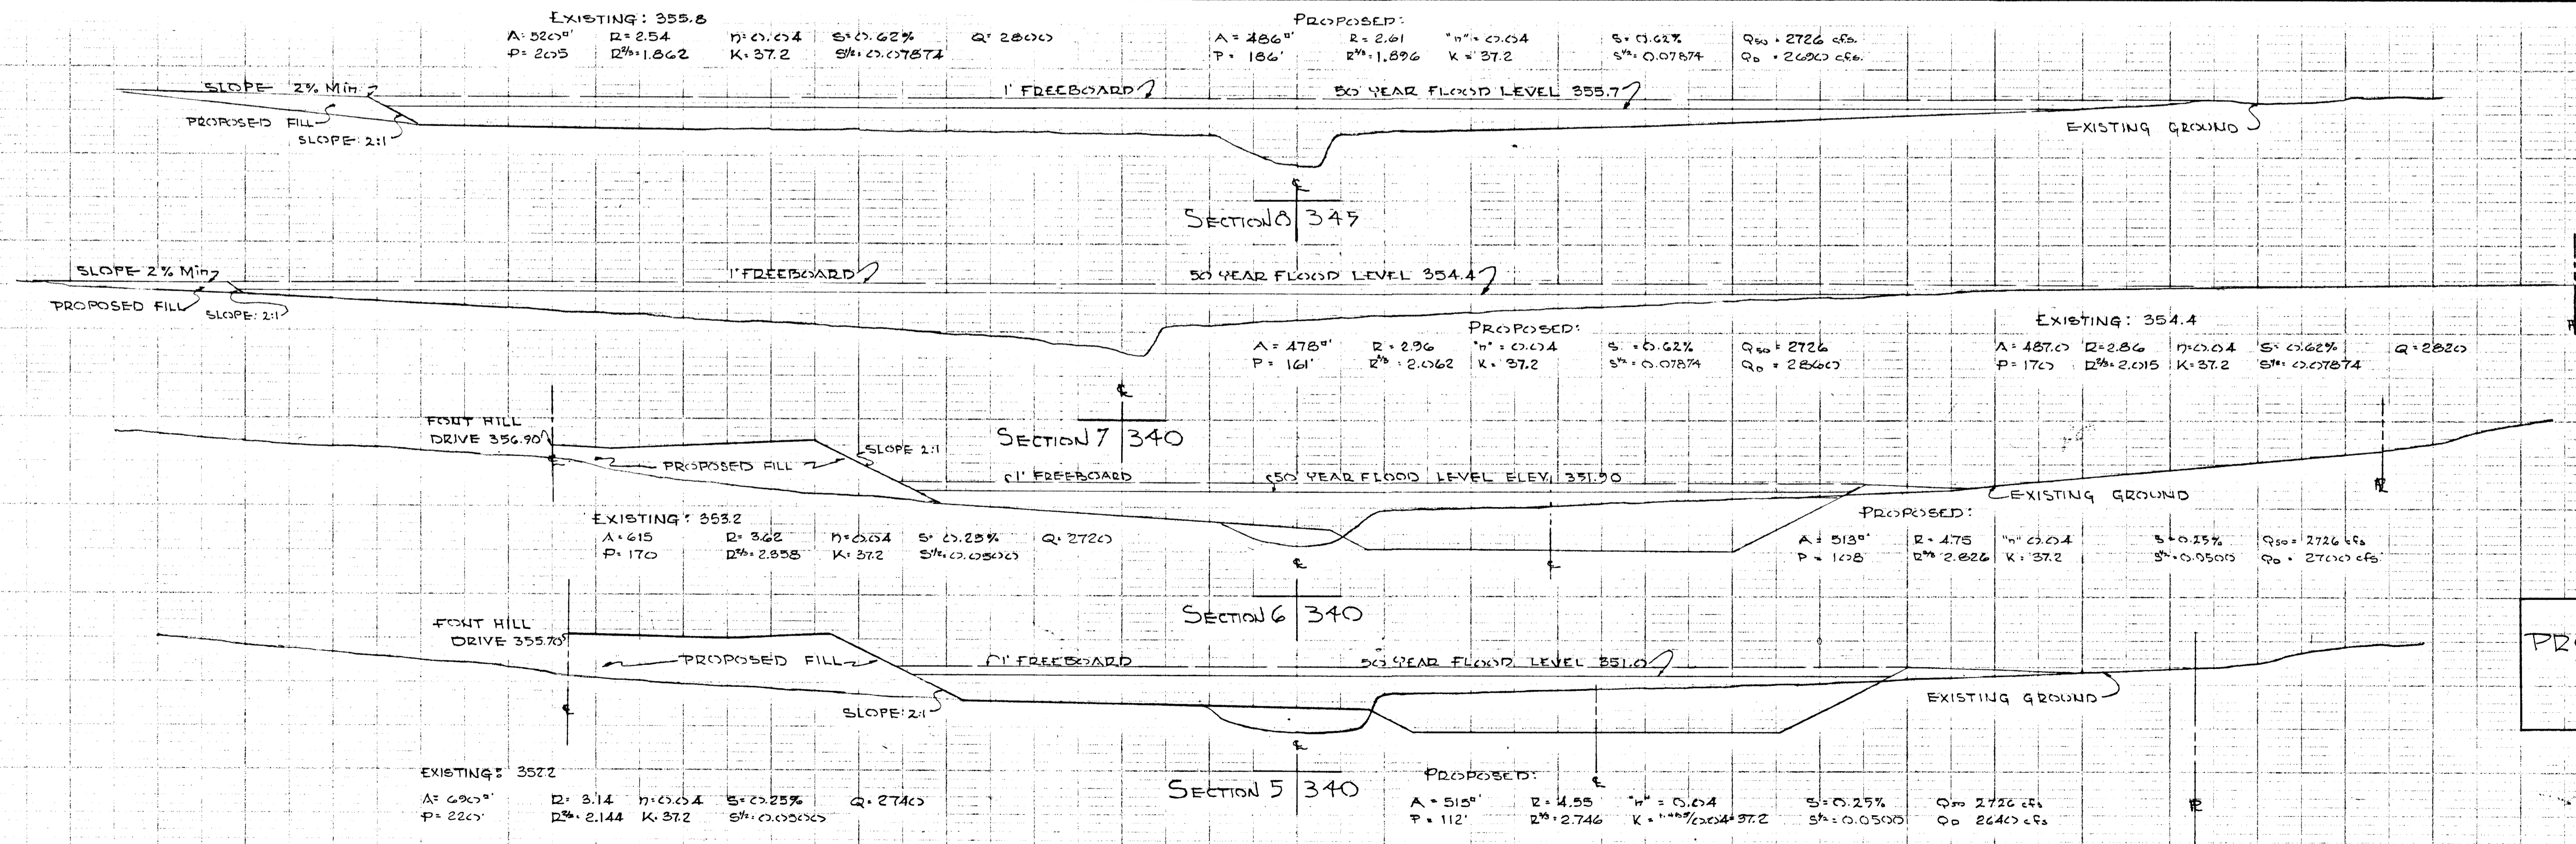 EXISTING: 355.8
A= 520□' R= 2.54 n= 0.04 S= 0.62% Q= 2800
P= 205 R⅔= 1.862 K= 37.2 S½= 0.07874
PROPOSED:
A = 486□' R = 2.61 "n" = 0.04 S= 0.62% Q50 = 2726 cfs.
P = 186' R⅔= 1.896 K = 37.2 S½= 0.07874 QD = 2690 cfs.
SLOPE 2% Min.
PROPOSED FILL
SLOPE: 2:1
1' FREEBOARD
50 YEAR FLOOD LEVEL 355.7
EXISTING GROUND
℄
SECTION 8 345
SLOPE 2% Min
PROPOSED FILL
SLOPE: 2:1
1' FREEBOARD
50 YEAR FLOOD LEVEL 354.4
PROPOSED:
A = 478□' R = 2.96 "n" = 0.04 S = 0.62% Q50 = 2726
P = 161' R⅔ = 2.062 K = 37.2 S½ = 0.07874 QD = 2860
EXISTING: 354.4
A= 487.0 R= 2.86 n= 0.04 S= 0.62% Q= 2820
P= 170 R⅔= 2.015 K= 37.2 S½= 0.07874
℄
SECTION 7 340
FONT HILL
DRIVE 356.90
℄
PROPOSED FILL
SLOPE 2:1
1' FREEBOARD
50 YEAR FLOOD LEVEL ELEV. 351.90
EXISTING GROUND
EXISTING: 353.2
A= 615 R= 3.62 n= 0.04 S= 0.25% Q= 2720
P= 170 R⅔= 2.358 K= 37.2 S½= 0.0500
PROPOSED:
A = 513□' R = 4.75 "n" 0.04 S= 0.25% Q50 = 2726 cfs
P = 108 R⅔ 2.826 K = 37.2 S½= 0.0500 QD = 2700 cfs.
℄
℄
SECTION 6 340
FONT HILL
DRIVE 355.70
℄
PROPOSED FILL
SLOPE: 2:1
1' FREEBOARD
50 YEAR FLOOD LEVEL 351.0
EXISTING GROUND
℄
℄
SECTION 5 340
EXISTING: 352.2
A= 690□' R= 3.14 n= 0.04 S= 0.25% Q= 2740
P= 220' R⅔= 2.144 K= 37.2 S½= 0.0500
PROPOSED:
A = 515□' R = 4.55 "n" = 0.04 S= 0.25% Q50 2726 cfs
P = 112' R⅔= 2.746 S½= 0.0500 QD 2640 cfs